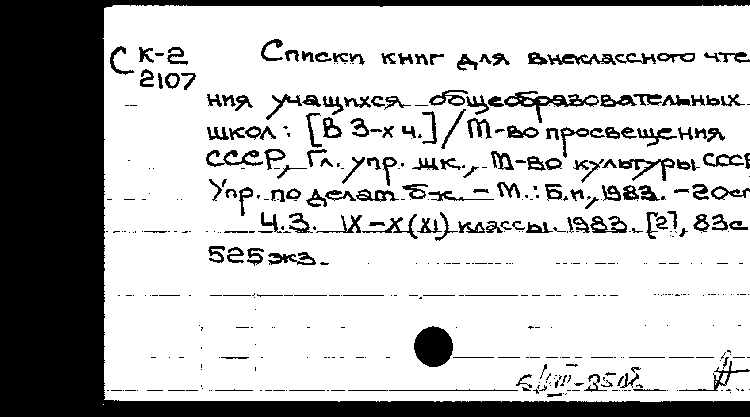 С К-2
2107
Списки книг для внеклассного чте
ния учащихся общеобразовательных
школ: [В 3-х ч.] / М-во просвещения
СССР, Гл. упр. шк., М-во культуры СССР
Упр. по делам б-к. - М.: Б.и, 1983. - 20см
Ч.3. IX-X(XI) классы. 1983. [2], 83с
525экз.